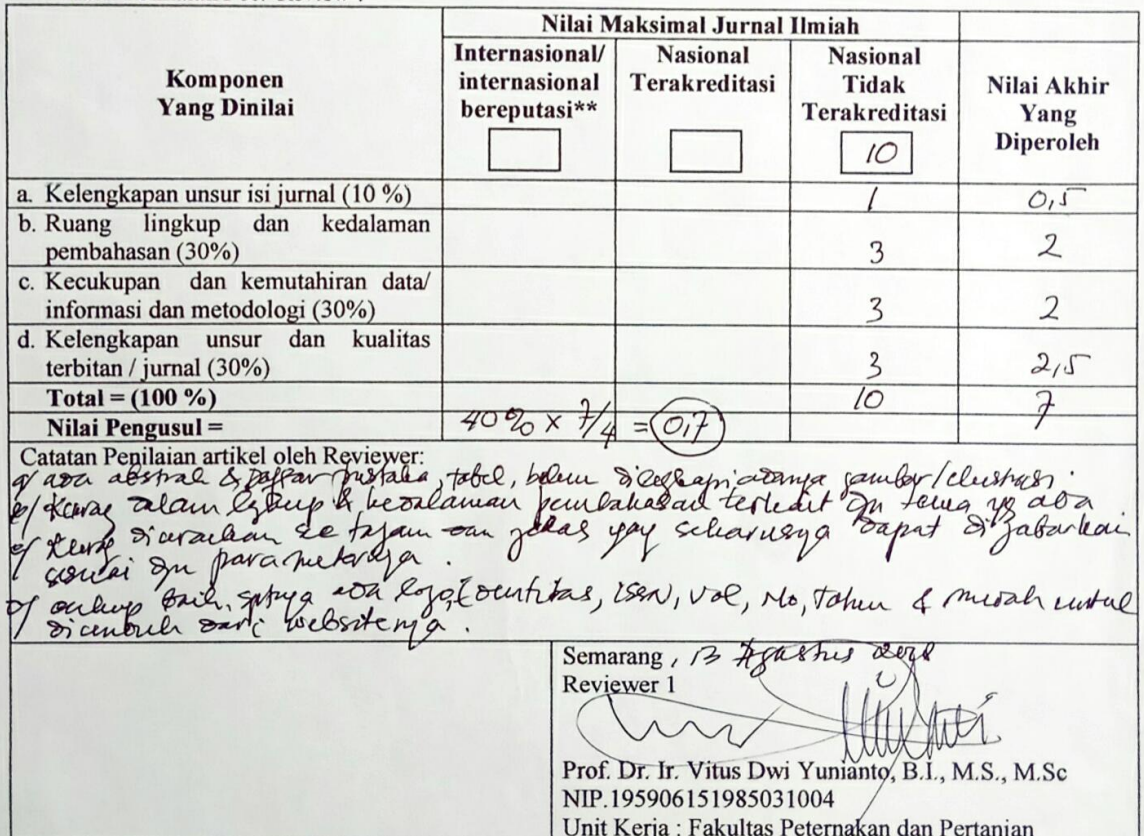 Nilai Maksimal Jurnal Ilmiah
Komponen
Yang Dinilai
Internasional/
internasional
bereputasi**
Nasional
Terakreditasi
Nasional
Tidak
Terakreditasi
10
Nilai Akhir
Yang
Diperoleh
a. Kelengkapan unsur isi jurnal (10 %) 1 0,5
b. Ruang lingkup dan kedalaman
pembahasan (30%) 3 2
c. Kecukupan dan kemutahiran data/
informasi dan metodologi (30%) 3 2
d. Kelengkapan unsur dan kualitas
terbitan / jurnal (30%) 3 2,5
Total = (100 %) 10 7
Nilai Pengusul = 40% x 7/4 = 0,7
Catatan Penilaian artikel oleh Reviewer:
a/ ada abstrak & daftar pustaka, tabel, belum dilengkapi adanya gambar/ilustrasi.
b/ Kurang dalam & kedalaman pembahasan terkait dgn tema yg ada
c/ diarahkan tajam dan jelas yang seharusnya dapat dijabarkan
sesuai dgn parameternya.
d/ cukup baik, ada logo, identitas, ISSN, Vol, No, Tahun & mudah untuk
dari websitenya.
Semarang, 13 Agustus 2018
Reviewer 1
Prof. Dr. Ir. Vitus Dwi Yunianto, B.I., M.S., M.Sc
NIP.195906151985031004
Unit Kerja : Fakultas Peternakan dan Pertanian